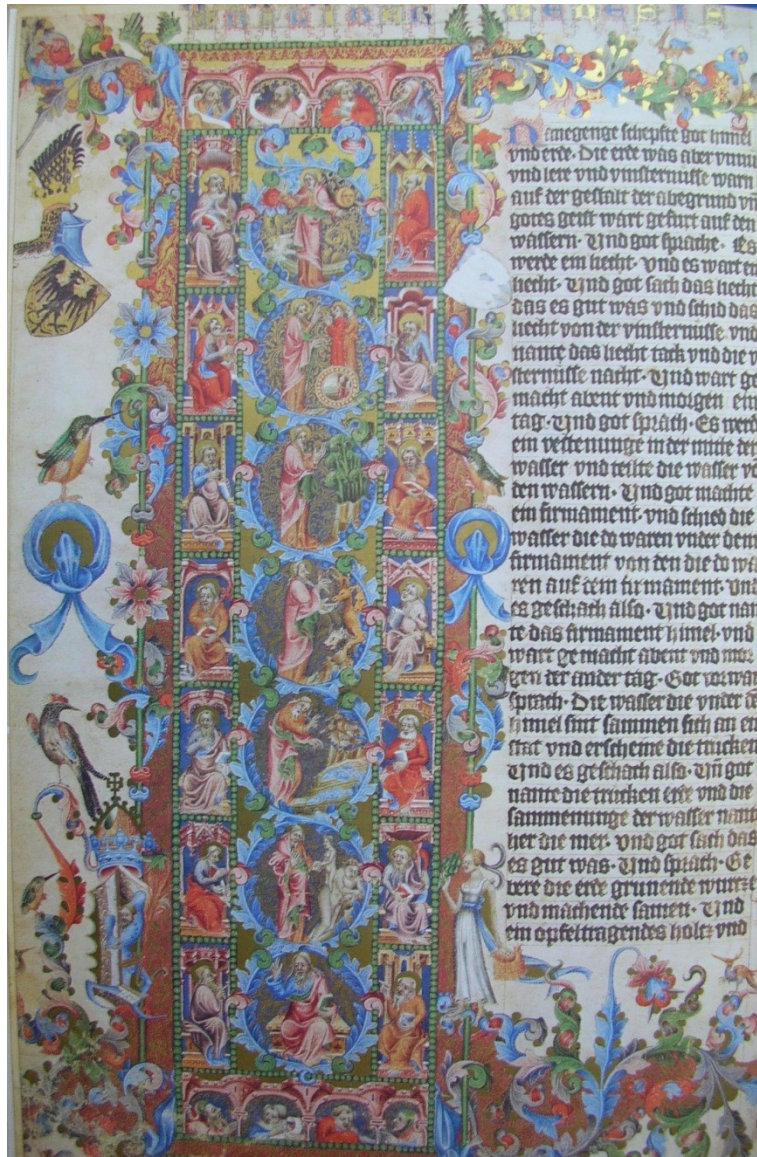 N amegenge schepfte got himel
vnd erde. Die erde was aber vnnu
vnd lere vnd vinsternusse warn
auf der gestalt der abegrund vn̄
gotes geist wart gefurt auf den
wassern. Vnd got sprache. Es
werde ein liecht. vnd es wart ein
liecht. Vnd got sach das liecht
das es gut was vnd schid das
liecht von der vinsternusse. vnd
nante das liecht tack vnd die v
sternusse nacht. Vnd wart ge
macht abent vnd morgen ein
tag. Vnd got sprach. Es werd
ein vestenunge in der mitte der
wasser vnd teilte die wasser vo
den wassern. Vnd got machte
ein firmament. vnd schied die
wasser die do waren vnder dem
firmament von den die do wa
ren auf dem firmament. vnd
es geschach also. Vnd got nan
te das firmament himel. vnd
wart gemacht abent vnd mor
gen der ander tag. Got vorwar
sprach. Die wasser die vnder dē
himel sint sammen sich an ein
stat vnd erscheine die trucken
Vnd es geschach also. Vn̄ got
nante die trucken erde vnd die
sammenunge der wasser nant
her die mer. vnd got sach das
es gut was. Vnd sprach. Ge
bere die erde grunende wurtze
vnd machende samen. Vnd
ein opfeltragendes holtz vnd